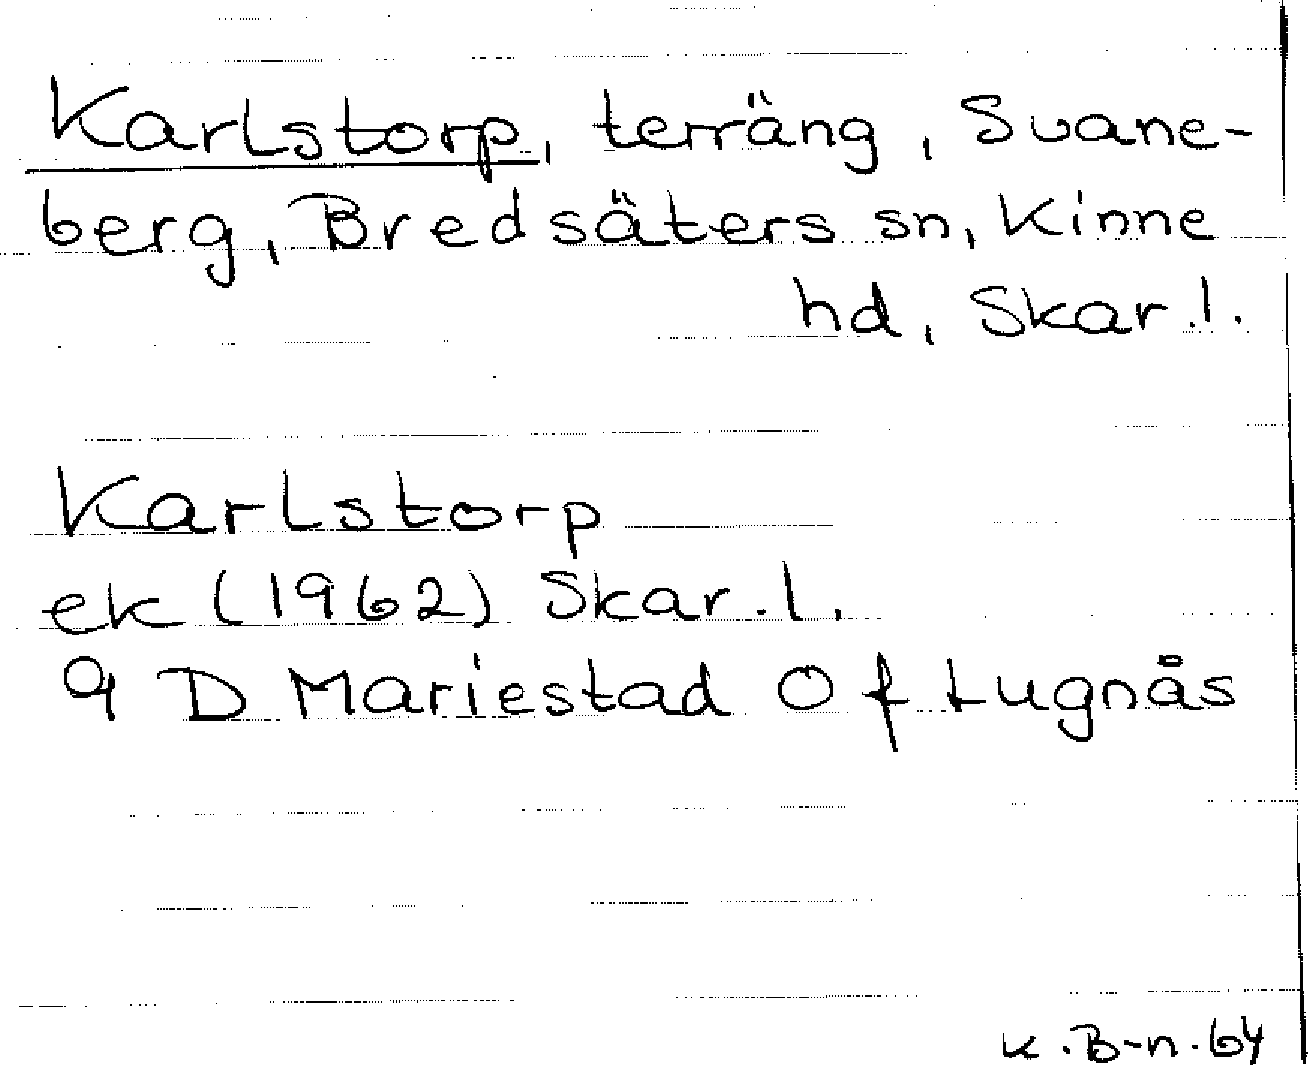 Karlstorp, terräng, Svane-
berg, Bredsäters sn, Kinne
hd, Skar.l.
Karlstorp
ek (1962) Skar.l.
9 D Mariestad O f Lugnås
K.B-n.64